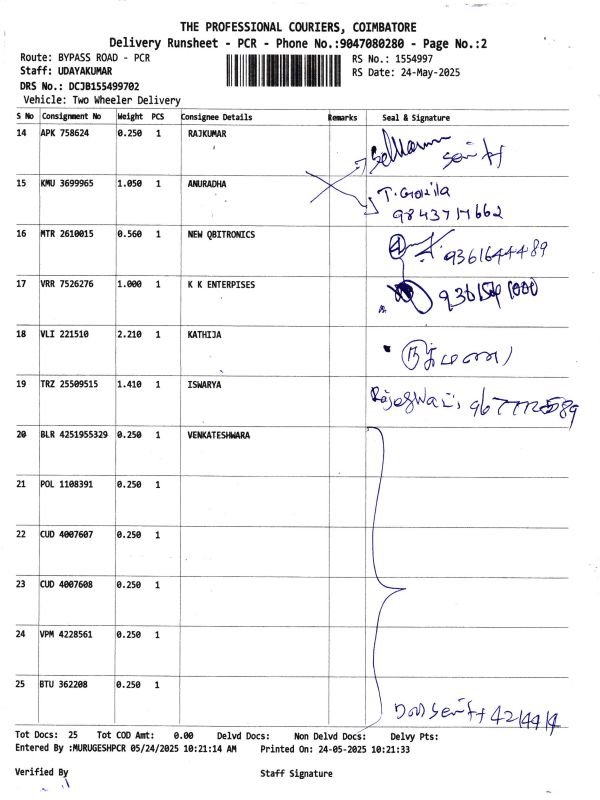 THE PROFESSIONAL COURIERS, COIMBATORE
Delivery Runsheet - PCR - Phone No.:9047080280 - Page No.:2
Route: BYPASS ROAD - PCR RS No.: 1554997
Staff: UDAYAKUMAR RS Date: 24-May-2025
DRS No.: DCJB155499702
Vehicle: Two Wheeler Delivery
S No Consignment No Weight PCS Consignee Details Remarks Seal & Signature
14 APK 758624 0.250 1 RAJKUMAR
15 KMU 3699965 1.050 1 ANURADHA
9843717662
16 MTR 2610015 0.560 1 NEW QBITRONICS 9361644489
17 VRR 7526276 1.000 1 K K ENTERPISES
18 VLI 221510 2.210 1 KATHIJA
19 TRZ 25509515 1.410 1 ISWARYA
20 BLR 4251955329 0.250 1 VENKATESHWARA
21 POL 1108391 0.250 1
22 CUD 4007607 0.250 1
23 CUD 4007608 0.250 1
24 VPM 4228561 0.250 1
25 BTU 362208 0.250 1
Tot Docs: 25 Tot COD Amt: 0.00 Delvd Docs: Non Delvd Docs: Delvy Pts:
Entered By :MURUGESHPCR 05/24/2025 10:21:14 AM Printed On: 24-05-2025 10:21:33
Verified By Staff Signature